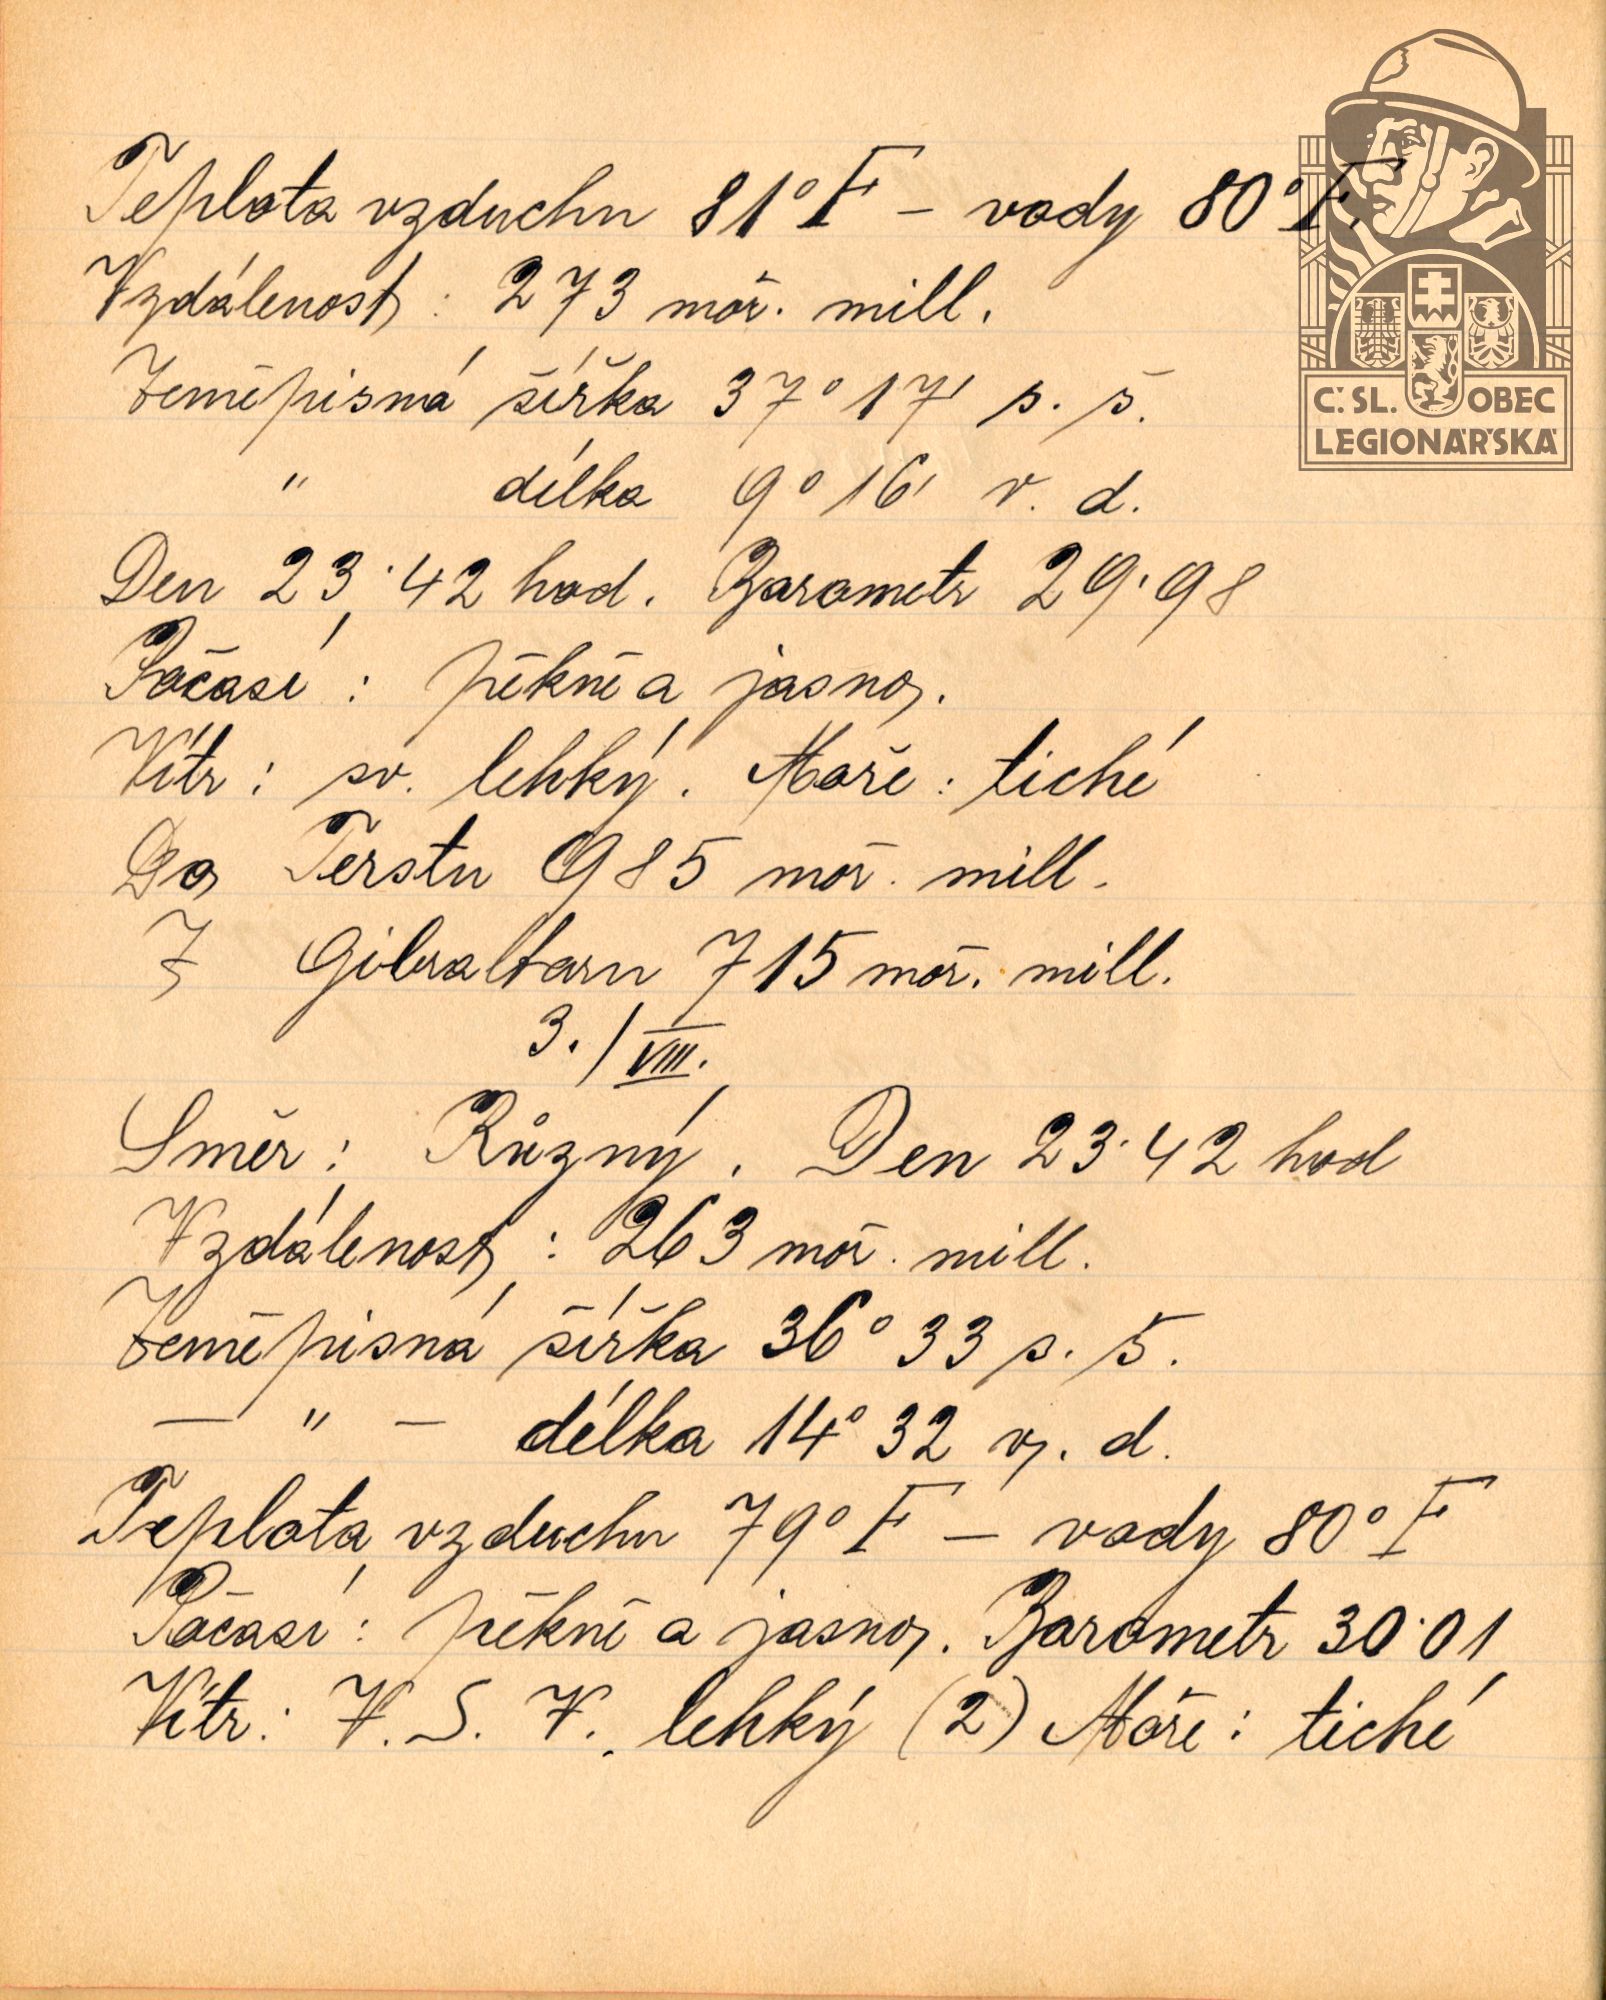 Teplota vzduchu 81° F – vody 80° F.
Vzdálenost : 273 moř. mill.
Zeměpisná šířka 37° 17' s. š.
" délka 9° 16' v. d.
Den 23·42 hod. Barometr 29·98
Počasí : pěkně a jasno.
Vítr : sv. lehký. Moře : tiché
Do Terstu 985 moř. mill.
Z Gibraltaru 715 moř. mill.
3./VIII.
Směr : Různý. Den 23·42 hod
Vzdálenost : 263 moř. mill.
Zeměpisná šířka 36° 33 s. š.
– " – délka 14° 32 v. d.
Teplota vzduchu 79° F – vody 80° F
Počasí : pěkně a jasno. Barometr 30·01
Vítr : V. S. V. lehký (2) Moře : tiché
Č. SL. OBEC
LEGIONÁŘSKÁ